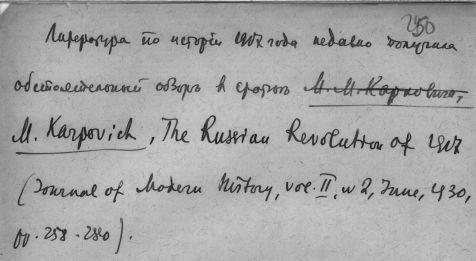 250
Литература по истории 1917 года недавно получила
обстоятельный обзоръ в статье М. М. Карповича,
M. Karpovich, The Russian Revolution of 1917
(Journal of Modern History, vol. II, N 2, June, 1930,
pp. 258-280).